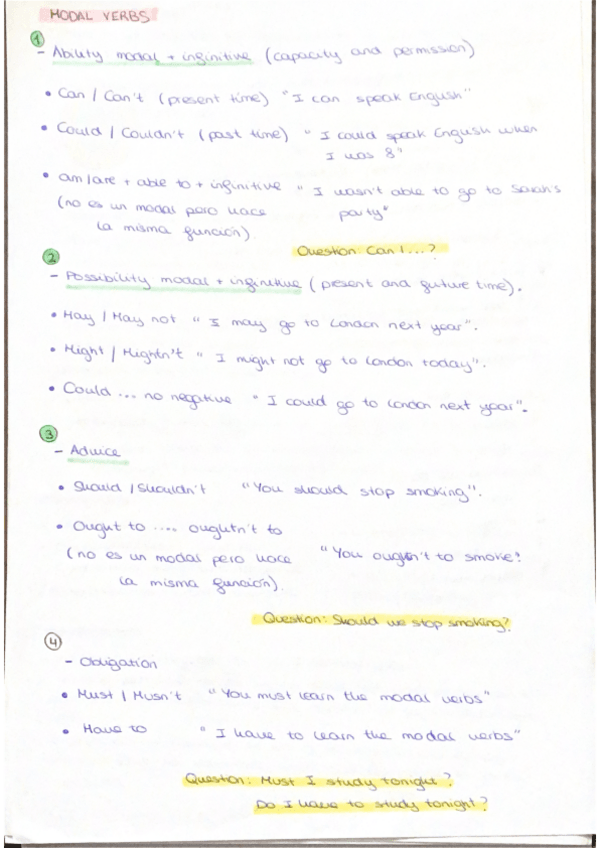 MODAL VERBS
1
- Ability modal + infinitive (capacity and permission)
• Can / Can't (present time) "I can speak English"
• Could / Couldn't (past time) "I could speak English when
I was 8"
• am/are + able to + infinitive "I wasn't able to go to Sarah's
(no es un modal pero hace party"
la misma función).
Question: Can I...?
2
- Possibility modal + infinitive (present and future time).
• May / May not "I may go to London next year".
• Might / Mightn't "I might not go to London today".
• Could ... no negative "I could go to London next year".
3
- Advice
• Should / Shouldn't "You should stop smoking".
• Ought to .... oughtn't to
(no es un modal pero hace "You oughtn't to smoke!
la misma función).
Question: Should we stop smoking?
4
- Obligation
• Must / Musn't "You must learn the modal verbs"
• Have to "I have to learn the modal verbs"
Question: Must I study tonight?
Do I have to study tonight?